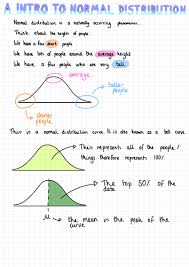 A INTRO TO NORMAL DISTRIBUTION
Normal distribution is a naturally occuring phenomenon.
Think about the height of people
We have a few short people
We have lots of people around the average height
We have a few people who are very tall
average
taller people
shorter people
This is a normal distribution curve. It is also known as a bell curve.
This represents all of the people /
things therefore represents 100%
The top 50% of the
data
μ the mean is the peak of the
curve